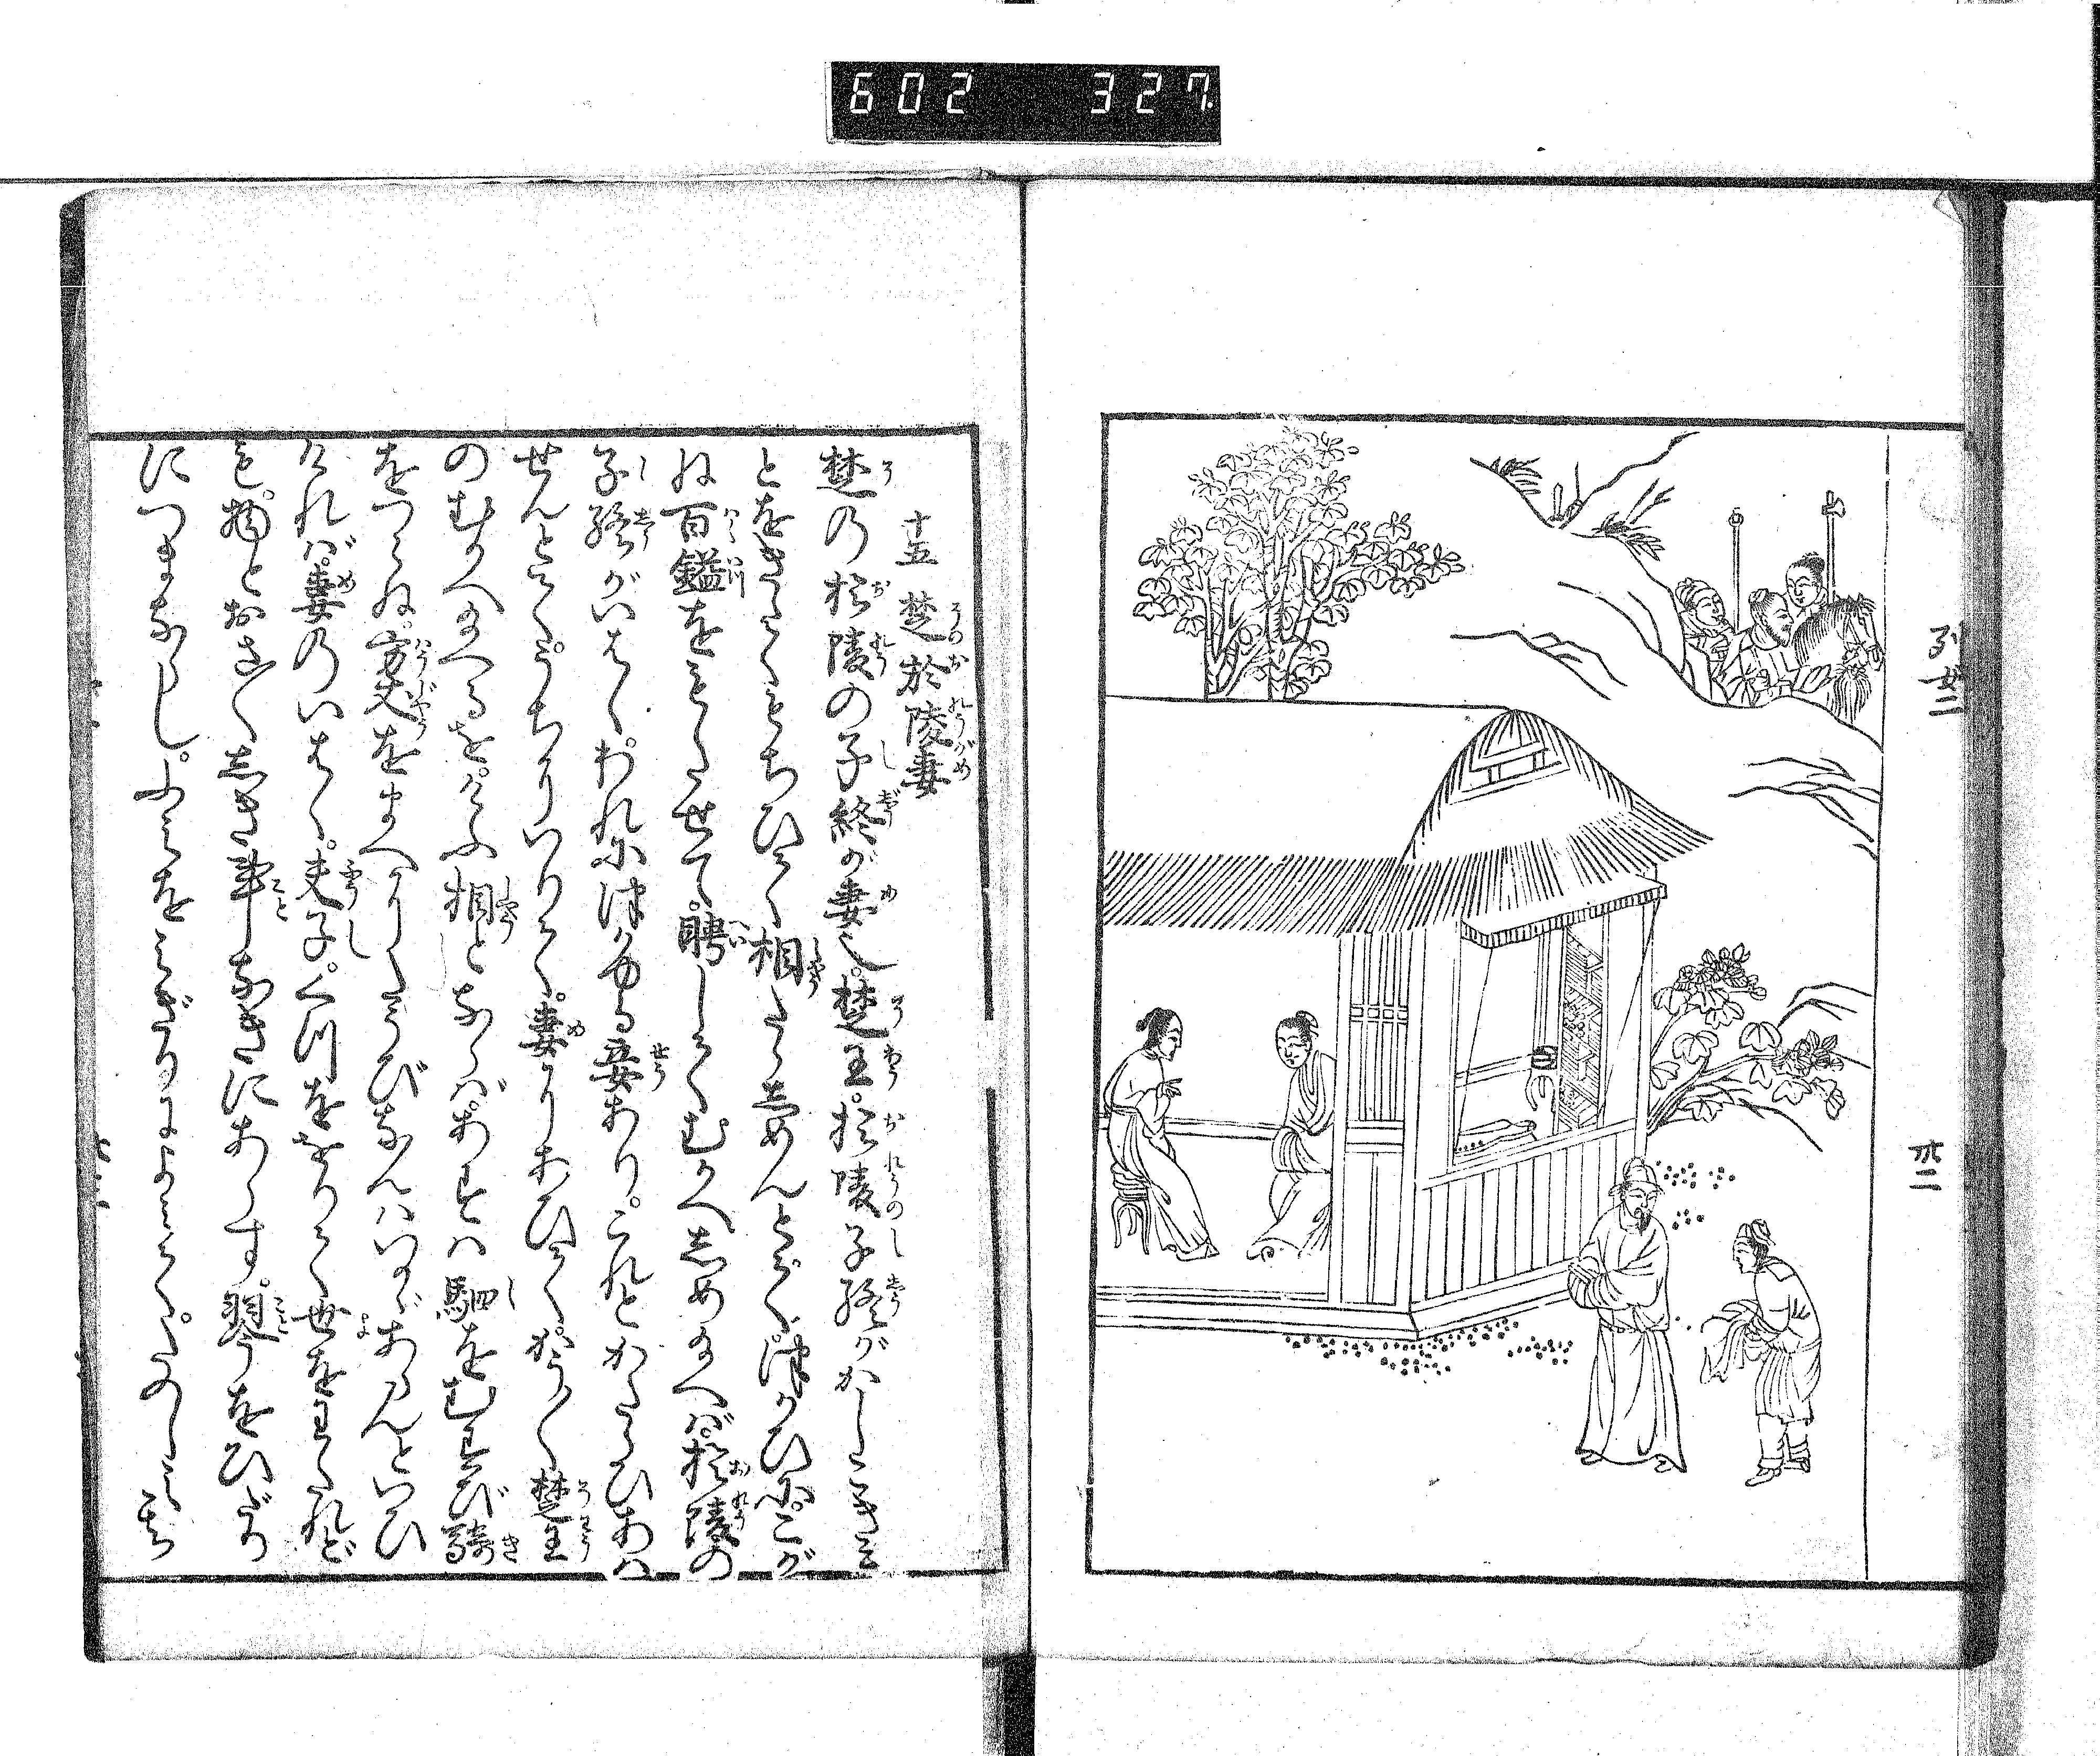 602 327
列女二
卅二
十五 楚於陵妻
楚の於陵の子終が妻也。楚王。於陵子終がかしこきこ
とをきゝてもちひて相たらしめんとぞ。つかひにこが
ね百鎰をもたせて。聘してむかへしめ給へば。於陵の
子終がいはく。われにつかふる妾あり。これとかたらひあは
せんとて。うちにいりて。妻にいひて。かうかく楚王
のむかへ給へるを。けふ相とならば。あすは駟をむすび騎
をつらね。方丈をまへにくらびなんはいかゞあらんといひ
ければ。妻のいはく。夫子。くつををりて世をわたれど
も。物とおなじく しき事なきにあらす。琴をひだり
につまなし。ふみをみぎりによみて。たのしみ